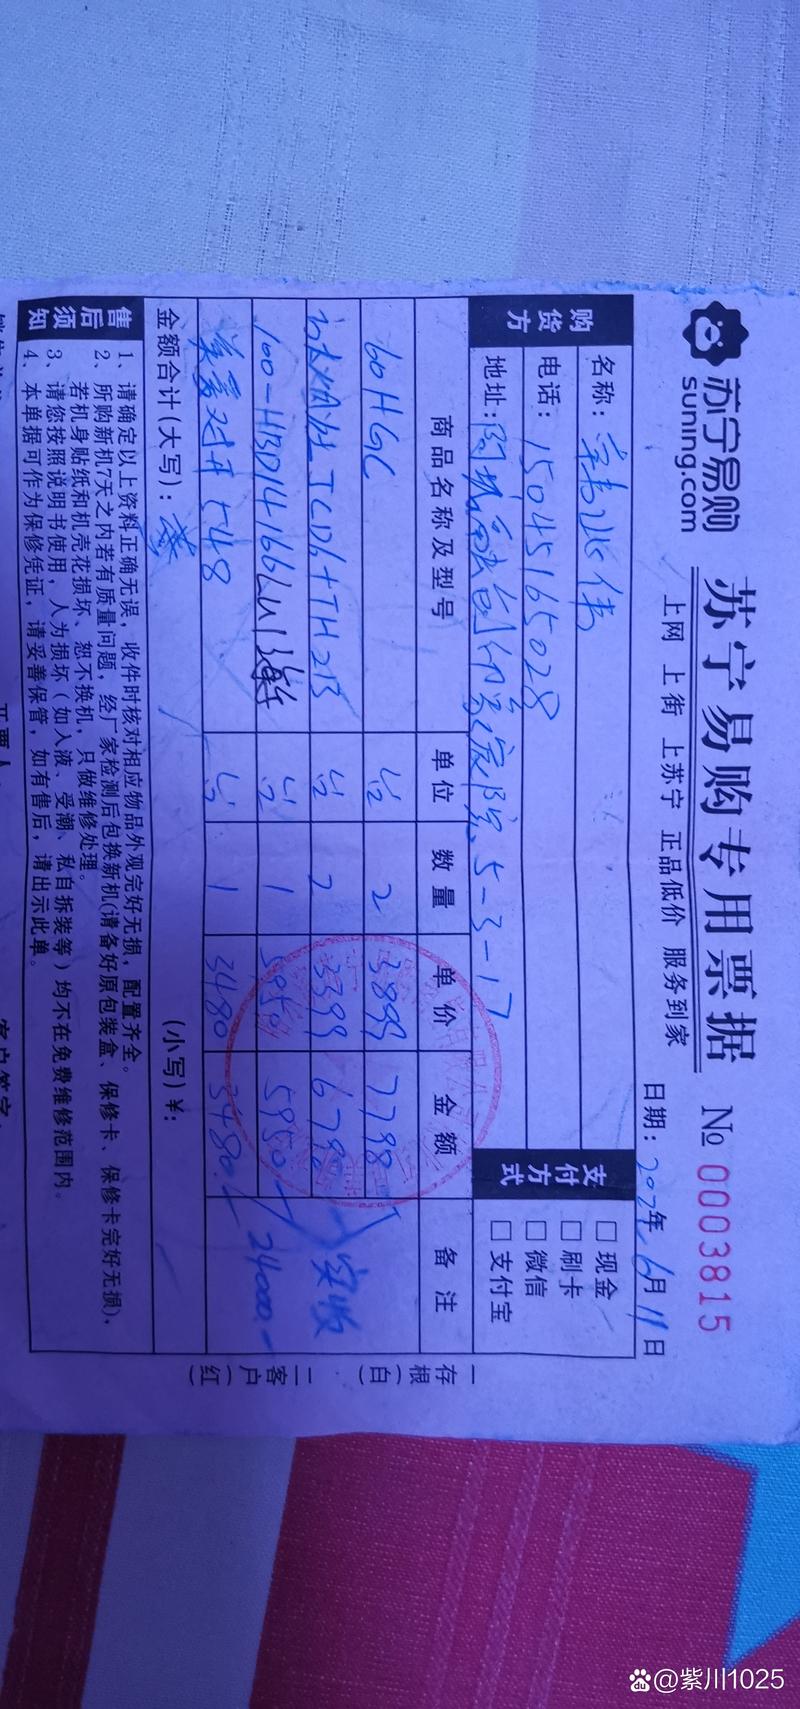 苏宁易购
suning.com
苏宁易购专用票据
№ 0003815
上网 上街 上苏宁 正品低价 服务到家
日期：2024年6月11日
购货方
名称：
电话：15045165028
地址：5-3-17
支付方式
□ 现金
□ 刷卡
□ 微信
□ 支付宝
商品名称及型号 单位 数量 单价 金额 备注
60HGC 台 2 3899 7798
JCD6+TH213 台 2 3399 6798 实收
100-HBD14166LU 台 1 5950 5950 24000.-
美菱对开548 台 1 3480 3480.
金额合计(大写)： (小写)¥：
售后须知
1、请确定以上资料正确无误，收件时核对相应物品外观完好无损，配置齐全。
2、所购新机7天之内若有质量问题，经厂家检测后包换新机(请备好原包装盒、保修卡、保修卡完好无损)，
若机身贴纸和机壳花损坏、恕不换机，只做维修处理。
3、请您按照说明书使用，人为损坏(如入液、受潮、私自拆装等)均不在免费维修范围内。
4、本单据可作为保修凭证，请妥善保管，如有售后，请出示此单。
一存根(白) 二客户(红)
开票人
客户签字
@紫川1025